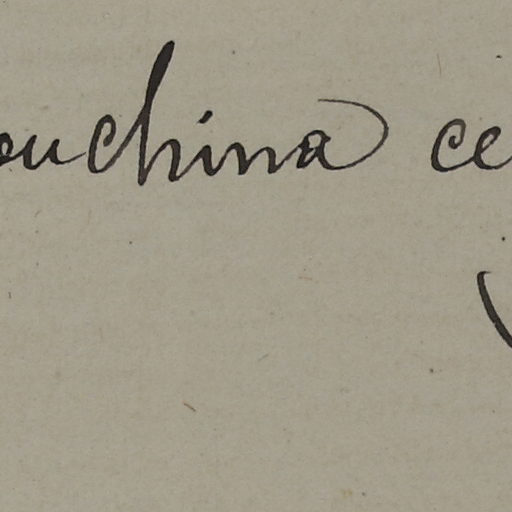 ouchina ce